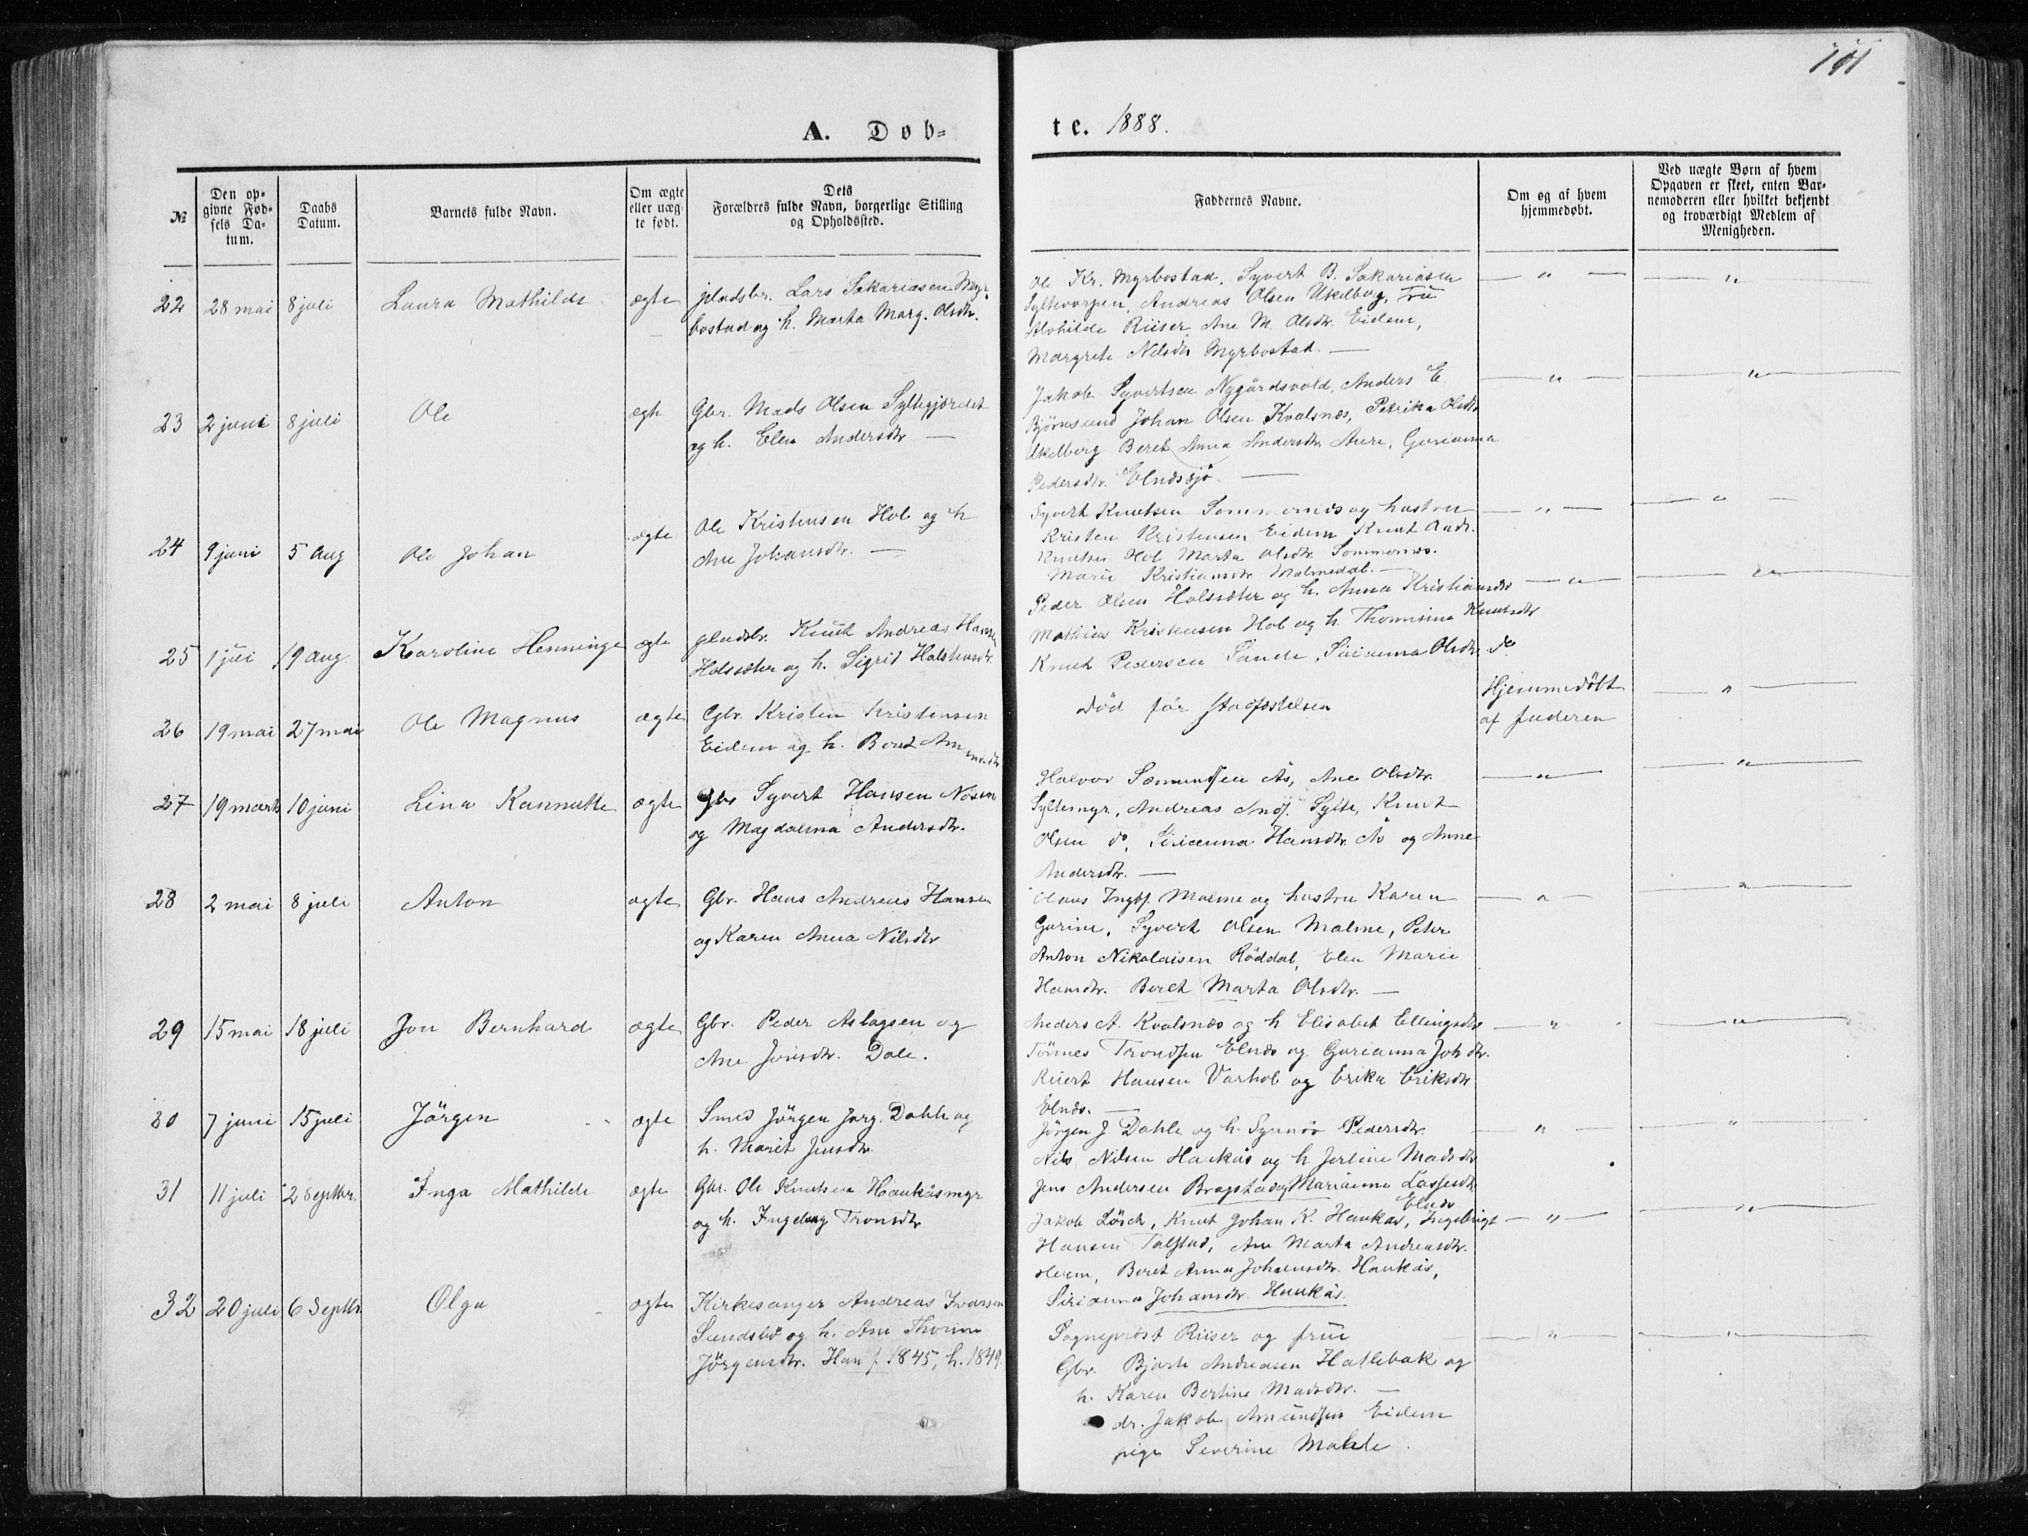 101
A. Døb=
te. 1888.
№
Den op=
givne Fød=
sels Da=
tum.
Daabs
Datum.
Barnets fulde Navn.
Om ægte
eller uæg=
te født.
Dets
Forældres fulde Navn, borgerlige Stilling
og Opholdssted.
Faddernes Navne.
Om og af hvem
hjemmedøbt.
Ved uægte Børn af hvem
Opgaven er skeet, enten Bar=
nemoderen eller hvilket bekjendt
og troværdigt Medlem af
Menigheden.
22 28 mai 8 juli Laura Mathilde ægte pladsbr. Lars Sakariasen Myr=
bostad og h. Marta Marg. Olsdtr.
Ole Kr. Myrbostad, Syvert B. Sakariasen
Syltevorpen, Andreas Olsen Ukelberg, Fru
Alvhilde Riiser, Ane M. Olsdtr. Eidem,
Margrete Nilsdtr Myrbostad. —
— " — — " —
23 2 juni 8 juli Ole ægte Gbr. Mads Olsen Syltegjerdet
og h. Elen Andersdtr. —
Jakob Syvertsen Nygårdsvold, Anders E.
Bjørnsund Johan Olsen Kvalsnes, Petrika Olsdtr
Ukelberg Beret Anna Andersdtr. Aure, Gurianna
Pedersdtr. Elnessjø. —
— " — — " —
24 9 juni 5 Aug Ole Johan ægte Ole Kristensen Hol og h
Ane Johansdtr. —
Syvert Knutsen Sommernes og hustru
Kristen Kristensen Eidem Knut Andr.
Knutsen Hol Marta Olsdtr. Sommernes.
Marie Kristiansdtr Malmedal. —
— " — — " —
25 1 juli 19 aug. Karoline Henninge ægte pladsbr. Knut Andreas Hansen
Holsæter og h. Sigrid Holstensdtr.
Peder Olsen Holsæter og h. Anna Kristiansdtr
Mathias Kristensen Hol og h. Thomine Knutsdtr
Knut Pedersen Sande, Sirianna Olsdtr. do
— " — — " —
26 19 mai 27 mai Ole Magnus ægte Gbr. Kristen Kristensen
Eidem og h. Beret Amundsdtr
Død før stadfæstelsen
Hjemmedøbt
af faderen
— " —
27 19 marts 10 juni Lina Kannutte ægte Gbr Syvert Hansen Nåsen
og Magdalena Andersdtr.
Halvor Samundsen Ås, Ane Olsdtr.
Syltemyr, Andreas And. Sylte, Knut
Olsen do, Sirianna Hansdtr. Ås og Anne
Andersdtr. —
— " — — " —
28 2 mai 8 juli Anton ægte Gbr. Hans Andreas Hansen
og Karen Anna Nilsdtr
Olaus Ingbr. Malme og hustru Karen
Gurine, Syvert Olsen Malme, Peter
Anton Nikolaisen Røddal, Elen Marie
Hansdtr. Beret Marta Olsdtr. —
— " — — " —
29 15 mai 18 juli Jon Bernhard ægte Gbr. Peder Aslagsen og
Ane Jonsdtr. Dale.
Anders A. Kvalsnes og h Elisabet Ellingsdtr
Tørnes Trondsen Elnes og Gurianna Joh dtr.
Riert Hansen Varhol og Erika Eriksdtr
Elnes. —
— " — — " —
30 7 juni 15 juli Jørgen ægte Smed Jørgen Jørg. Dahle og
h. Marit Jensdtr.
Jørgen J Dahle og h. Synnøv Pedersdtr.
Nils Nilsen Haukås og h Jertine Madsdtr
Jens Andersen Bragstad og Marianne Lassesdtr
Elnes
— " — — " —
31 11 juli 2 Septbr. Inga Mathilde ægte Gbr. Ole Knutsen Haukåsmyr
og h. Ingeborg Tronsdtr
Jakob Løsch, Knut Johan K. Haukås, Ingebrigt
Hansen Talstad, Ane Marta Andreasdtr.
Herem, Beret Anna Johansdtr. Haukås,
Sirianna Johansdtr. Haukås.
— " — — " —
32 20 juli 6 Septbr. Olga ægte Kirkesanger Andreas Ivarsen
Sundsbø og h. Ane Thorine
Jørgensdtr. Han f. 1845, h. 1849.
Sogneprest Riiser og frue
Gbr. Bjarte Andreasen Hatlebak og
h. Karen Bertine Madsdtr. —
dr. Jakob Amundsen Eidem
pige Severine Mahle.
— " — — " —